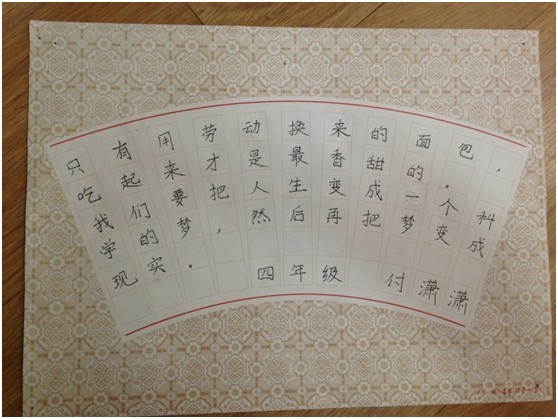 只有用劳动换来的面包，
吃起来才是最香甜的。
我们要把人生变成一个科
学的梦，然后再把梦变成
现实。
四年级 付潇潇